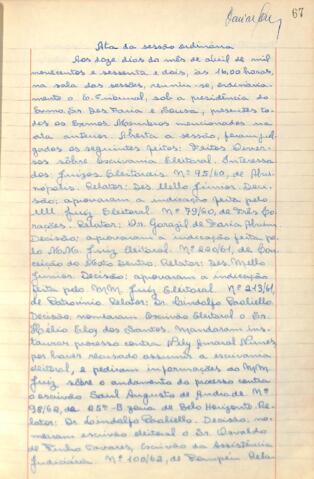 67
Ata da sessão ordinária
Aos doze dias do mês de abril de mil
novecentos e sessenta e dois, às 14,00 horas,
na sala das sessões, reuniu-se, ordinaria-
mente o E. Tribunal, sob a presidência do
Exmo. Sr. Des. Faria e Sousa, presentes to-
dos os Exmos. Membros mencionados na
ata anterior. Aberta a sessão, foram jul-
gados os seguintes feitos: Feitos Diver-
sos sôbre Escrivania Eleitoral. Interessa-
dos: Juízes Eleitorais. Nº 95/60, de
Relator: Des. Mello Júnior. Deci-
são: aprovaram a indicação feita pelo
MM. Juiz Eleitoral. Nº 79/60, de Três Co-
rações. Relator: Dr. de Faria
Decisão: aprovaram a indicação feita pe-
lo M.M. Juiz Eleitoral. Nº 220/61, de Con-
ceição do Mato Dentro. Relator: Des. Mello
Júnior. Decisão: aprovaram a indicação
feita pelo M.M. Juiz Eleitoral. Nº 213/61,
de Patrocínio. Relator: Dr. Lindolfo Paoliello.
Decisão: nomearam Escrivão Eleitoral o Sr.
Hélio Eloy dos Santos. Mandaram ins-
taurar processo contra Amaral Nunes
por haver recusado assumir a escrivania
eleitoral, e pediram informações ao M.M.
Juiz sôbre o andamento do processo contra
o escrivão Saul Augusto de Andrade. Nº
98/62, da 25ª zona de Belo Horizonte. Re-
lator: Dr. Lindolfo Paoliello. Decisão: no-
mearam escrivão eleitoral o Sr. Oswaldo
de Pinho Tavares, Escrivão da Assistência
Judiciária. Nº 100/62, de Pompéu. Rela-